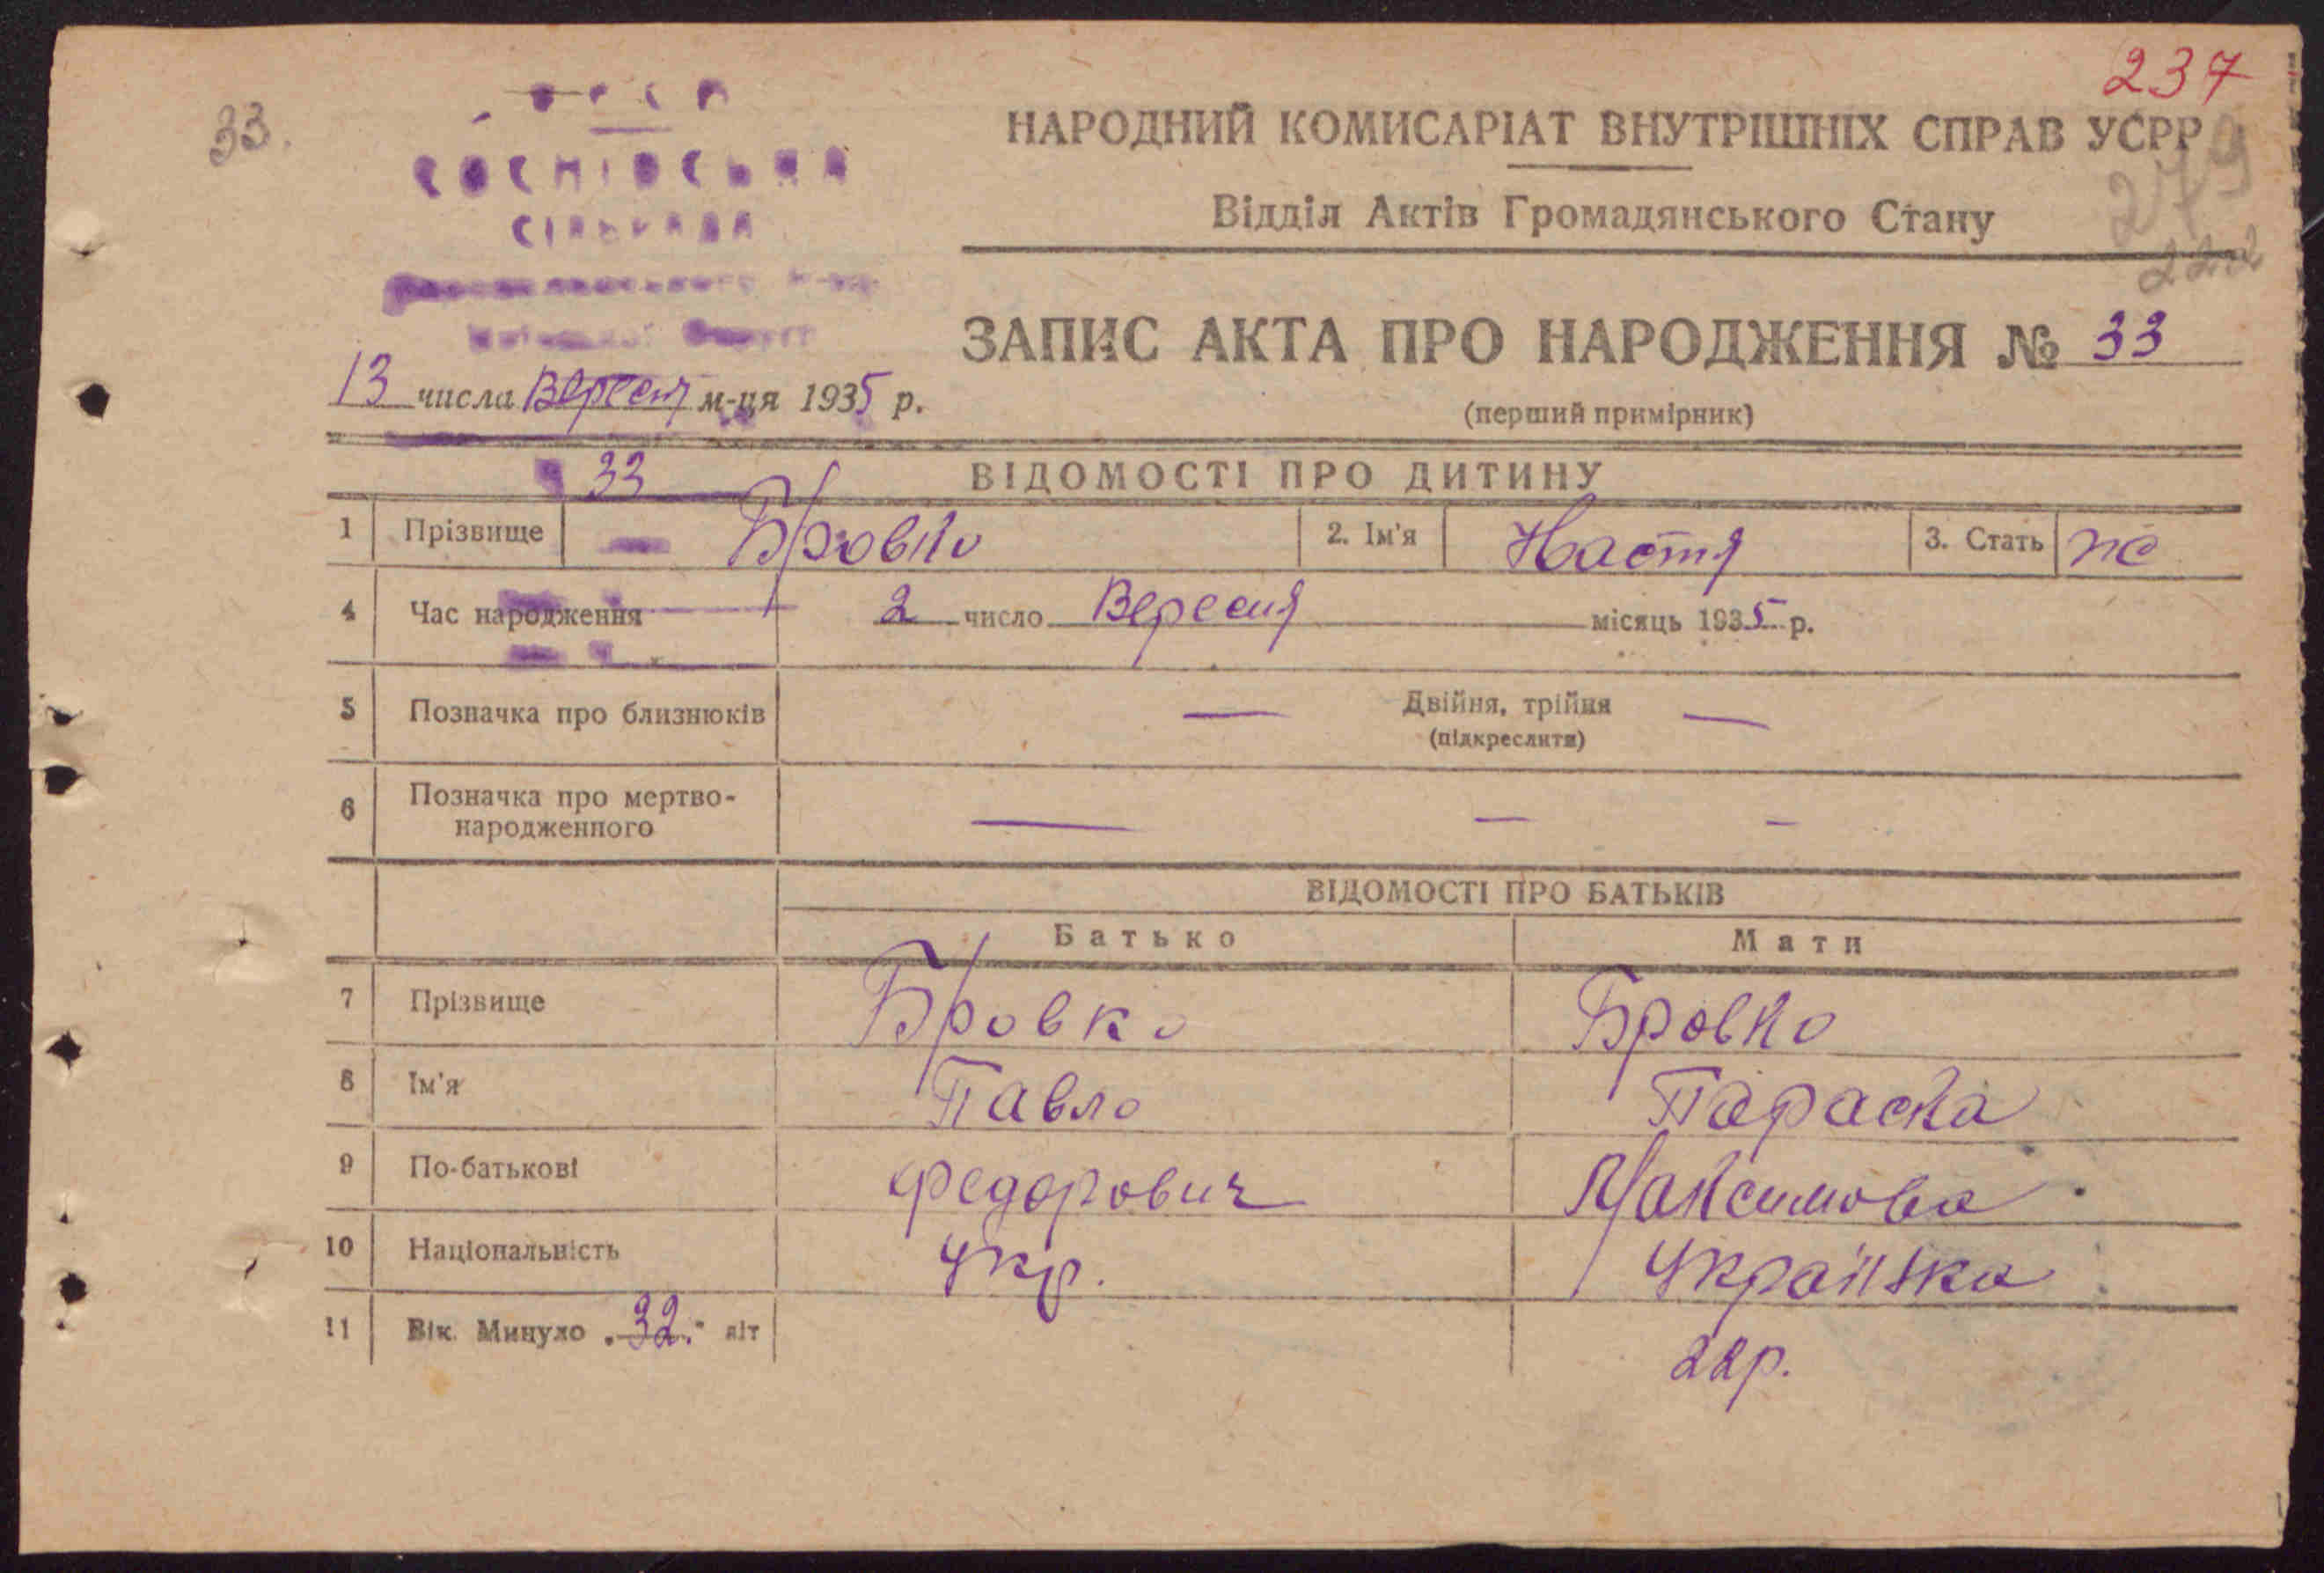 237
33.
УСРР
СОСНІВСЬКА
СІЛЬРАДА
НАРОДНИЙ КОМИСАРІАТ ВНУТРІШНІХ СПРАВ УСРР
279
Відділ Актів Громадянського Стану
222
ЗАПИС АКТА ПРО НАРОДЖЕННЯ № 33
13 числа Вересня м-ця 1935 р.
(перший примірник)
33
ВІДОМОСТІ ПРО ДИТИНУ
1 Прізвище Бровко 2. Ім'я Настя 3. Стать ж
4 Час народження 2 число Вересня місяць 1935 р.
5 Позначка про близнюків — Двійня, трійня —
(підкреслити)
6 Позначка про мертво-
народженного — — —
ВІДОМОСТІ ПРО БАТЬКІВ
Батько Мати
7 Прізвище Бровко Бровко
8 Ім'я Павло Параска
9 По-батькові Федорович Максимова
10 Національність Укр. Українка
11 Вік. Минуло „32." літ 22р.